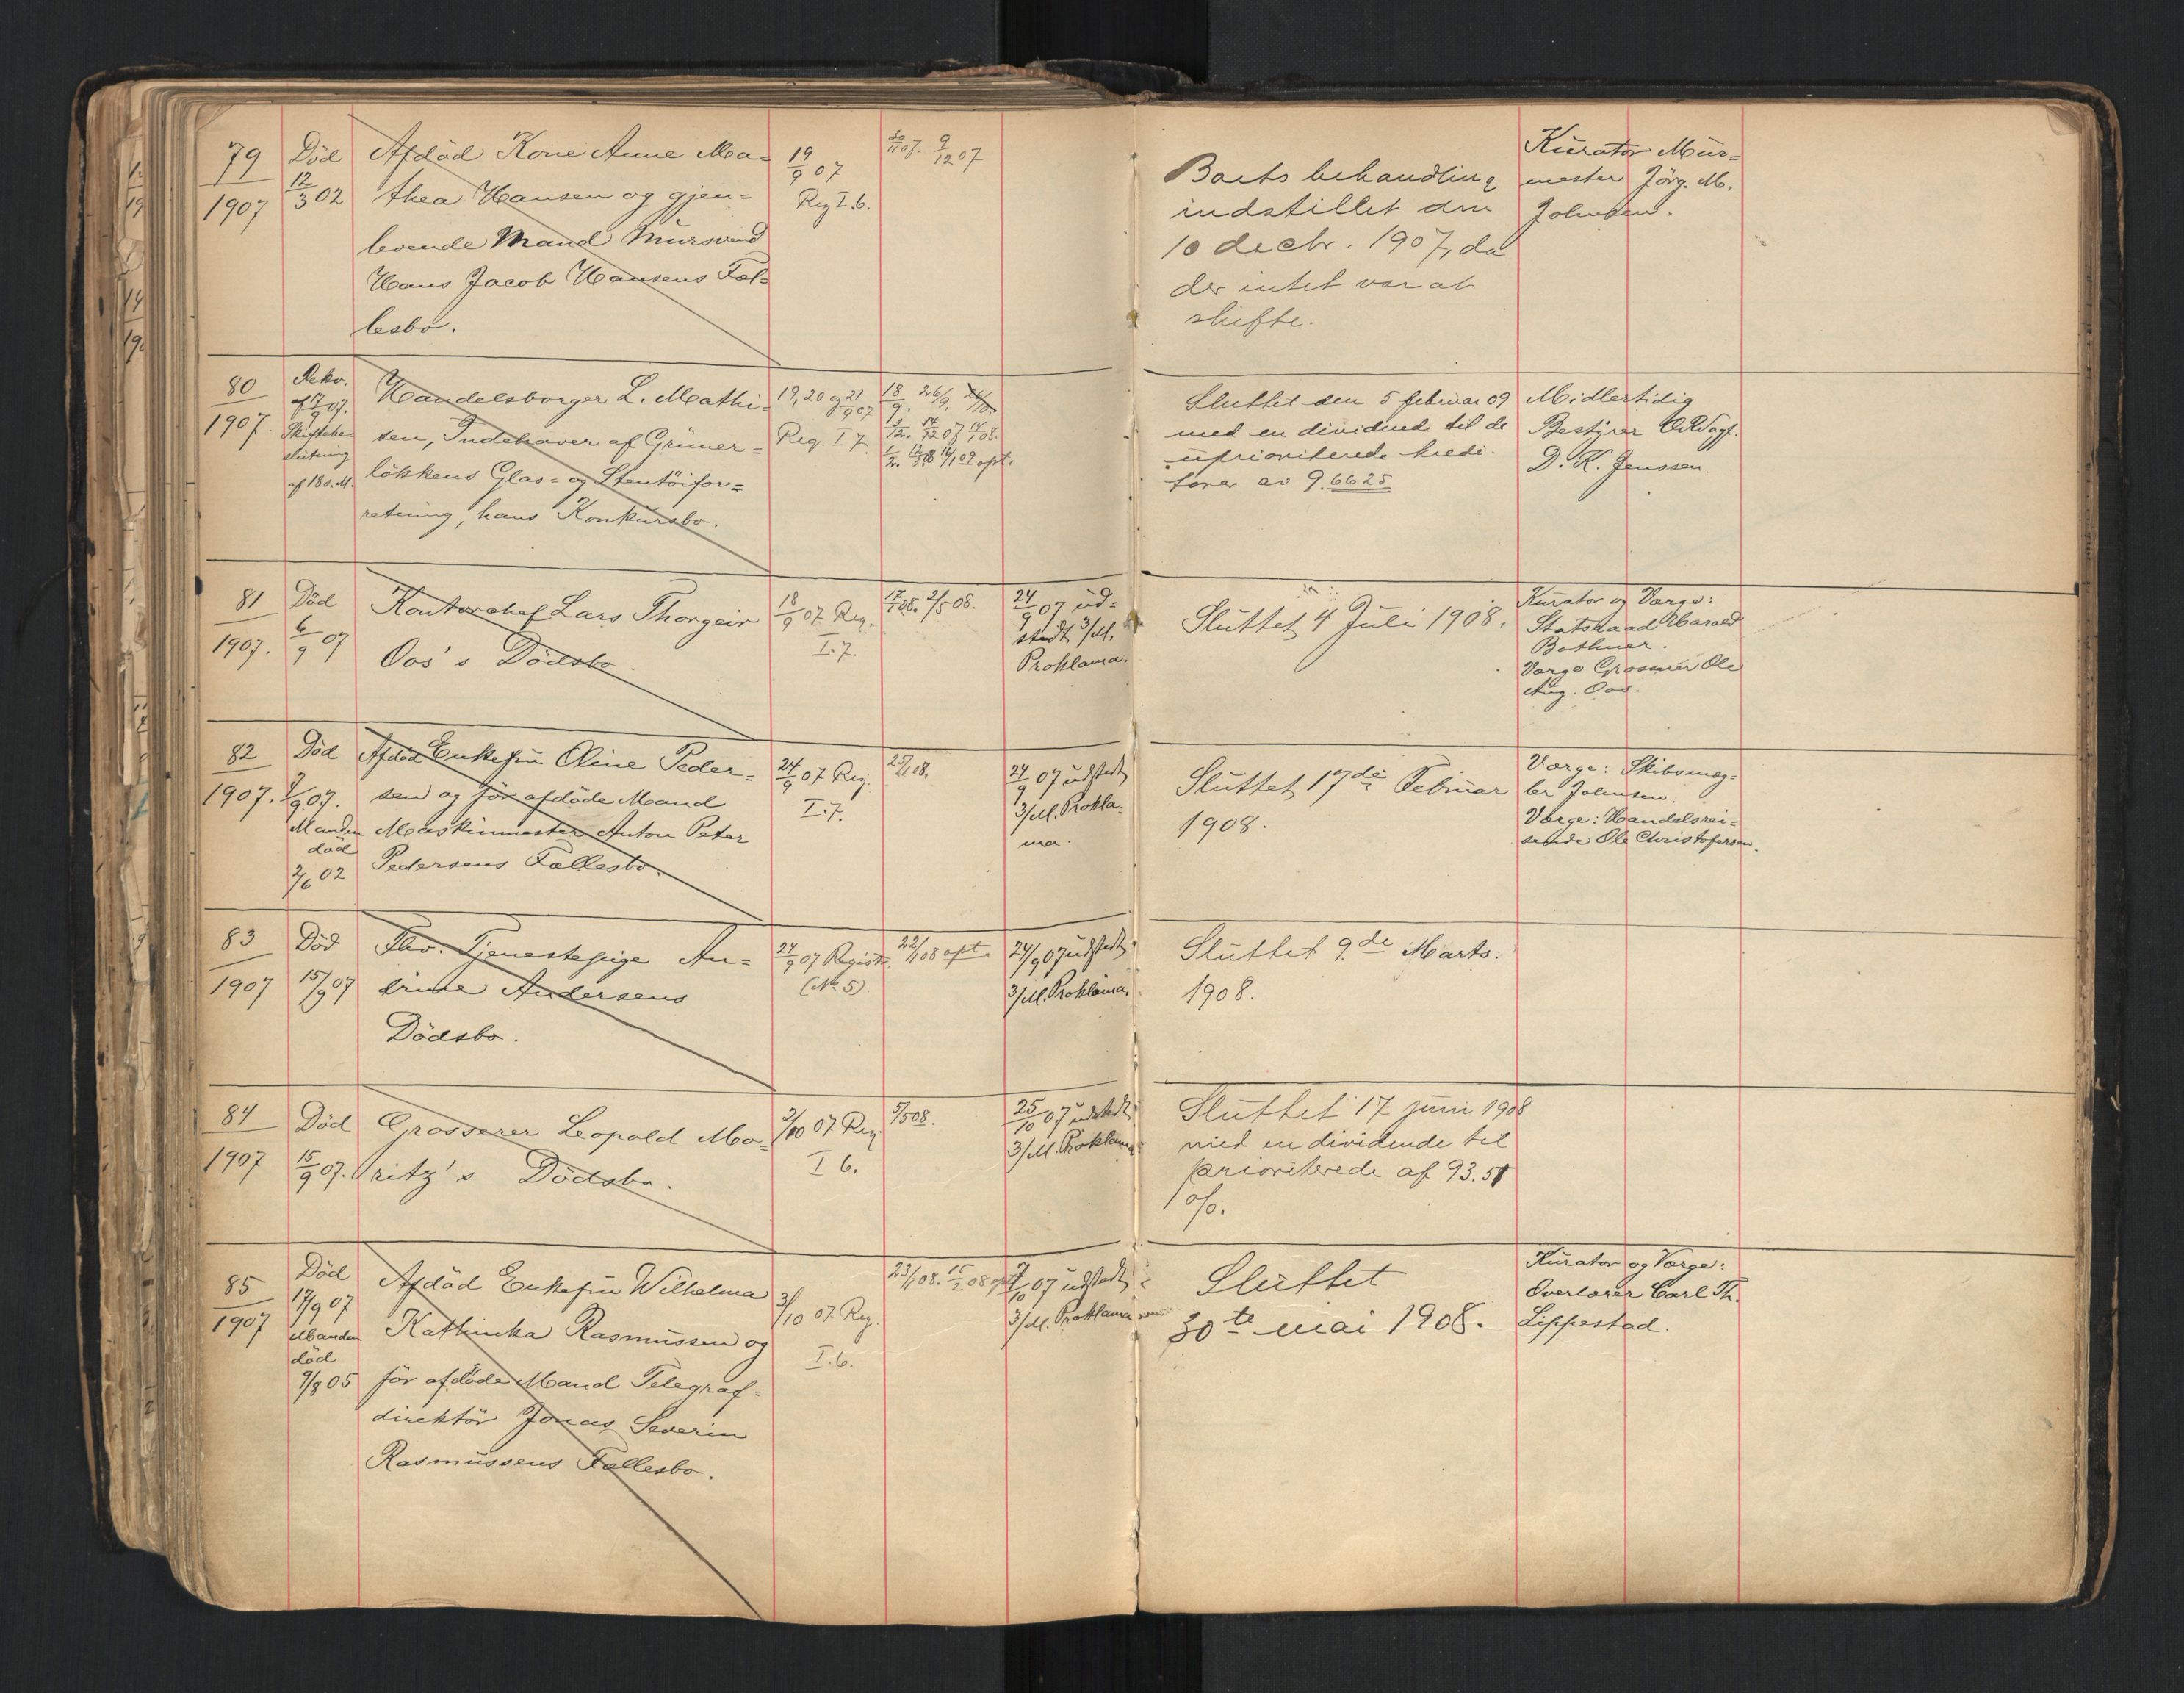 79
1907
Död
12/3 02
Afdöd Kone Anne Ma=
thea Hansen og gjen=
levende Mand Mürsvend
Hans Jacob Hansens Fæl=
lesbo.
19/9 07
Reg I. 6.
30/11 07. 9/12 07
Boets behandling
indstillet den
10 decbr. 1907, da
der intet var at
skifte.
Kürator Mür=
mester Jörg. M.
Johnsen.
80
1907.
Rekv.
af 17/9 07.
Skiftebe=
slutning
af 18 s. M.
Handelsborger L. Mathi=
sen, Indehaver af Grüner=
løkkens Glas= og Stentöifor=
retning, hans Konkürsbo.
19, 20 og 21/9 07
Reg. I 7.
18/9. 26/9.
Sluttet den 5 februar 09
med en dividende til de
uprioriterede kredi-
torer av 9.6625
Midlertidig
Bestyrer O.R.Sagf.
D. K. Jenssen.
81
1907.
Död
6/9 07
Kontorchef Lars Thorgeir
Oos's Dödsbo.
18/9 07 Reg.
I. 7.
2/5 08.
24/9 07 üd=
stedt 3/M.
Proklama.
Slüttet 4 Jüli 1908.
Kürator og Værge:
Statsraad Harald
Bothner.
Værge Grosserer Ole
Aug. Oos.
82
1907.
Död
7/9 07.
Manden
död
2/6 02
Afdöd Enkefrü Oline Peder=
sen og för afdöde Mand
Maskinmester Anton Peter
Pedersens Fællesbo.
24/9 07 Reg.
I. 7.
25/1 08.
24/9 07 üdstedt
3/M. Prokla=
ma.
Slüttet 17de Febrüar
1908.
Værge: Skibsmæg=
ler Johnsen.
Værge: Handelsrei=
sende Ole Christofersen.
83
1907
Död
15/9 07
Fhv. Tjenestepige An=
drine Andersens
Dödsbo.
24/9 07 Registr.
(No 5).
22/1 08 opt.
24/9 07 üdstedt
3/M. Proklama.
Slüttet 9de Marts.
1908.
84
1907
Död
15/9 07.
Grosserer Leopold Mo=
ritz's Dödsbo.
2/10 07 Reg
I 6.
5/5 08.
25/10 07 üdstedt
3/M. Proklama
Slüttet 17 juni 1908
med en dividende til
prioriterede af 93.51
o/o.
85
1907
Död
17/9 07
Manden
död
9/8 05
Afdöd Enkefrü Wilhelma
Kathinka Rasmüssen og
för afdöde Mand Telegraf=
direktör Jonas Severin
Rasmüssens Fællesbo.
3/10 07. Reg.
I. 6.
23/1 08. 15/2 08 opt
7/10 07 üdstedt
3/M. Proklama
Slüttet
30te mai 1908.
Kürator og Værge:
Overlærer Carl Th.
Lippestad.